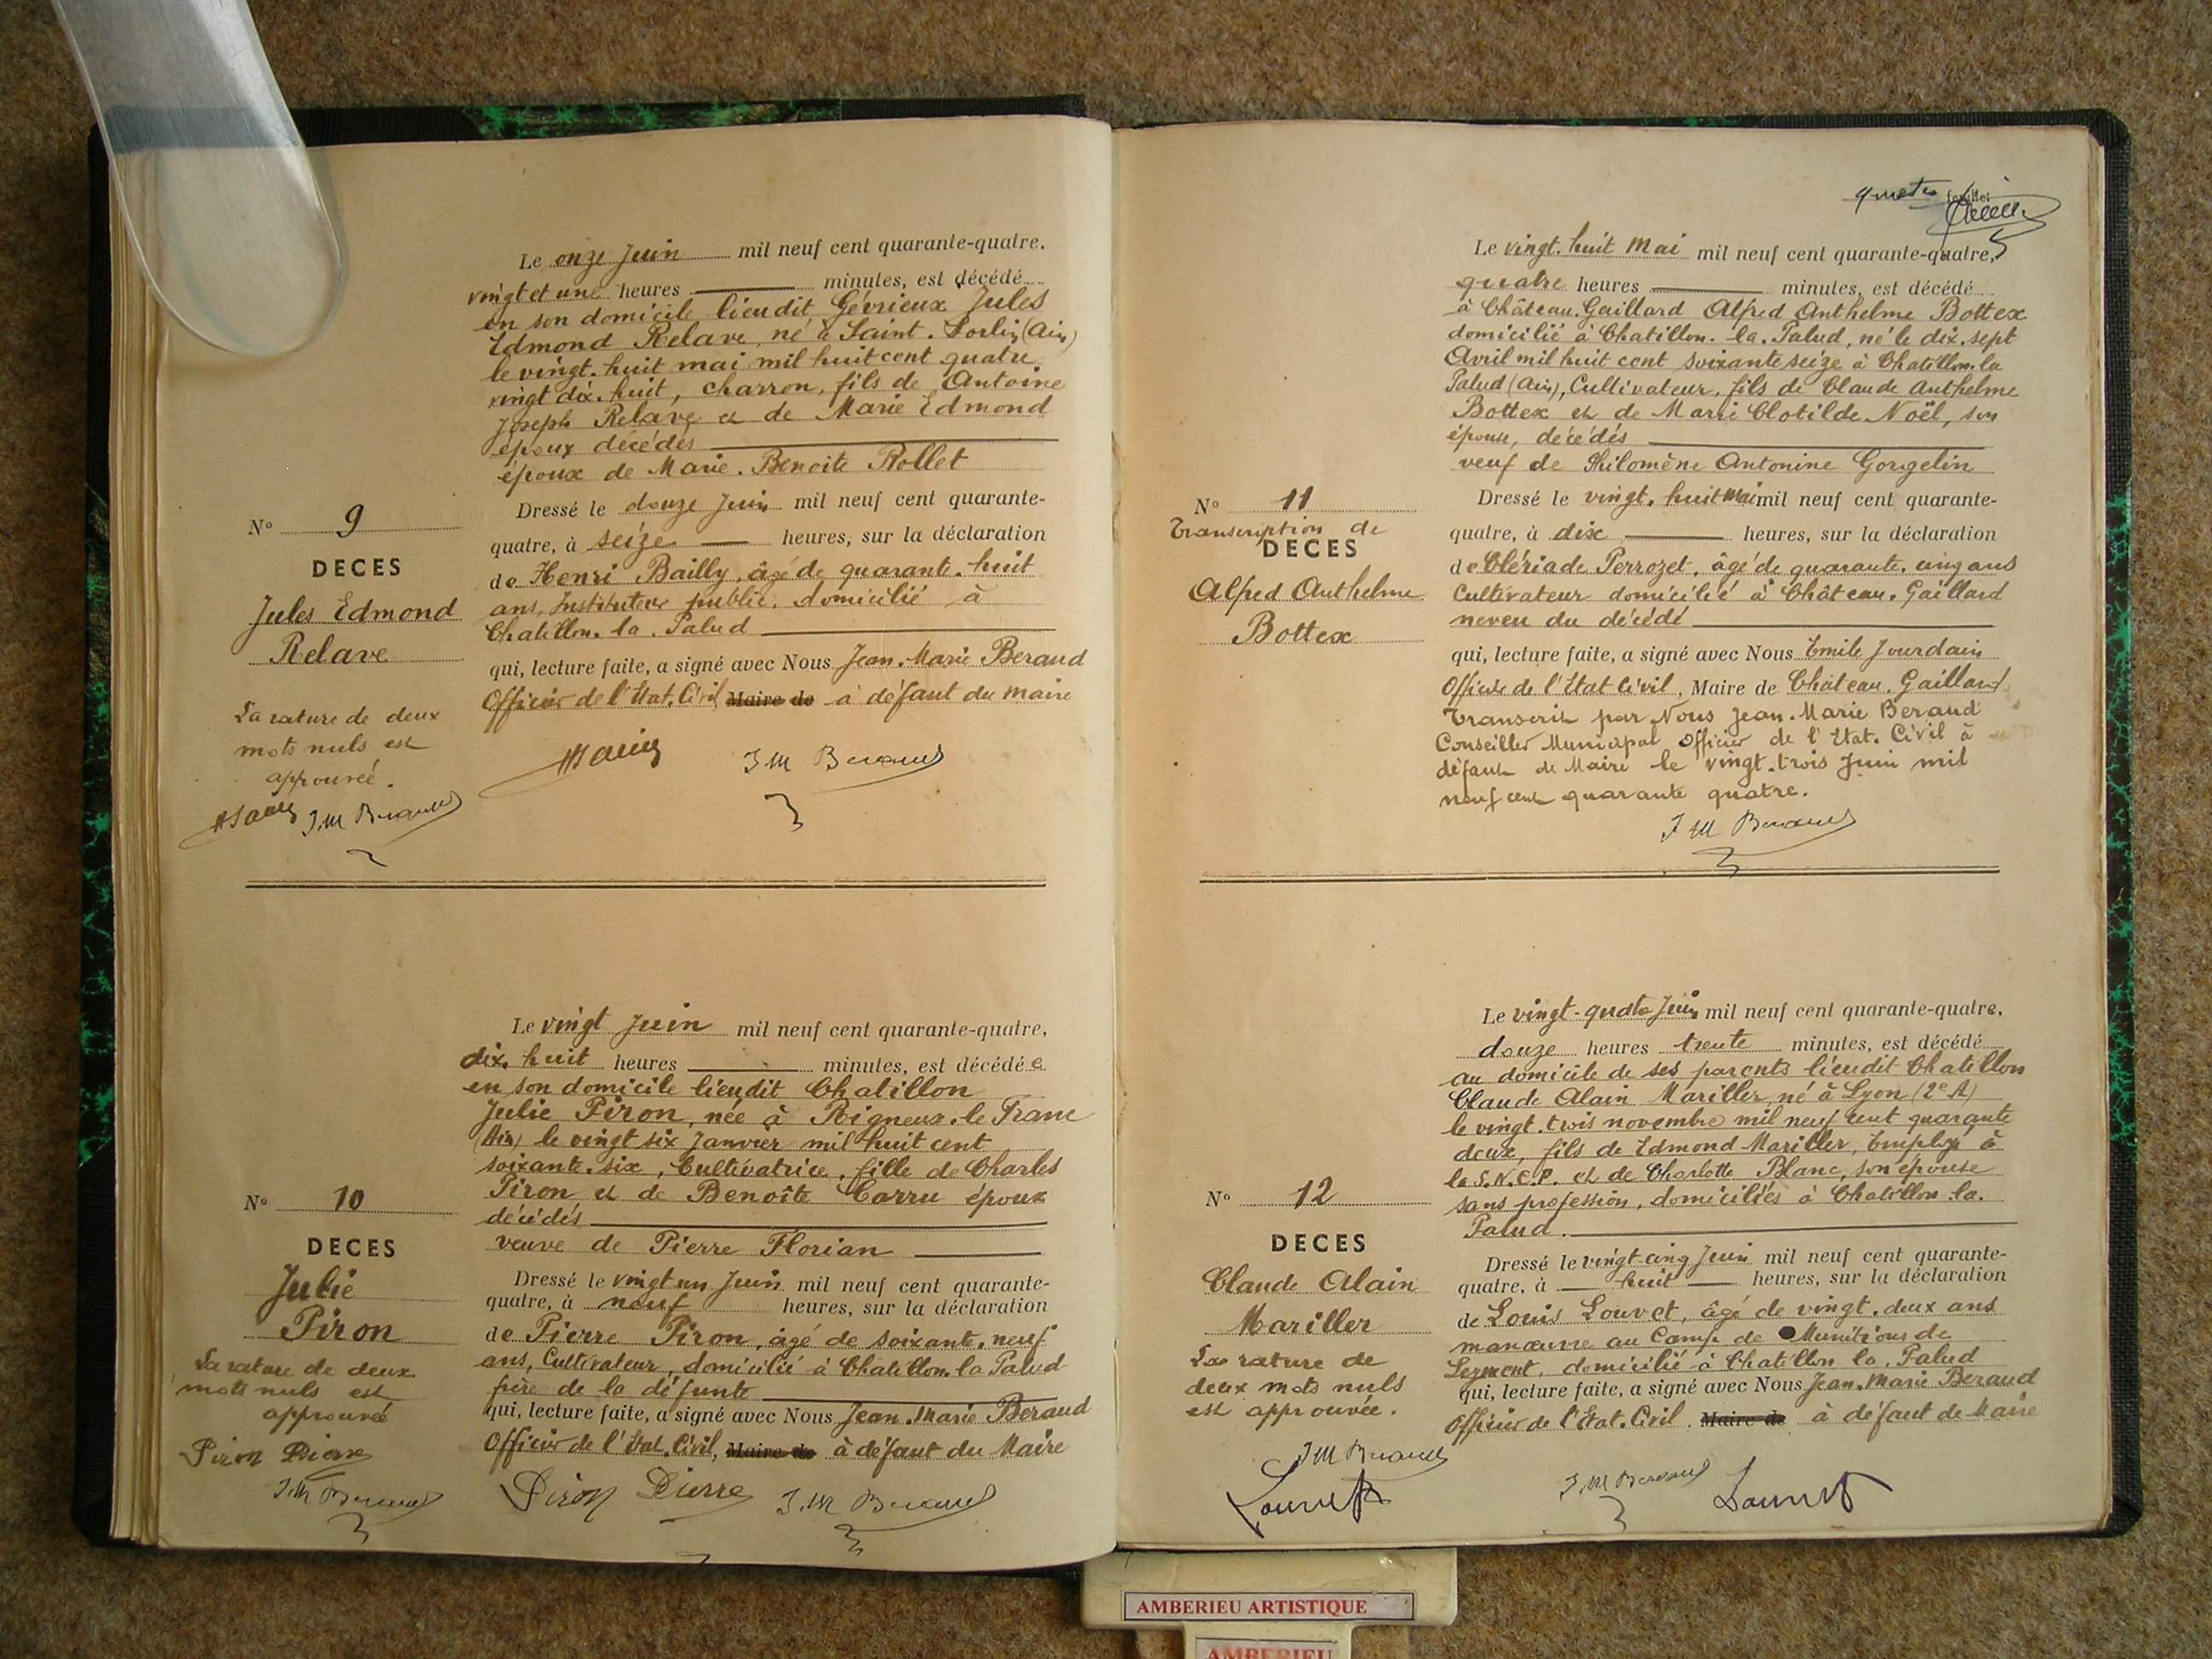 Le onze Juin mil neuf cent quarante-quatre.
vingt et une heures minutes, est décédé
en son domicile lieudit Gévrieux Jules
Edmond Relave, né à Saint. Sorlin (Ain)
le vingt. huit mai mil huit cent quatre
vingt dix. huit, charron, fils de Antoine
Joseph Relave et de Marie Edmond
époux décédés
époux de Marie. Benoite Rollet
Dressé le douze Juin mil neuf cent quarante-
quatre, à seize heures, sur la déclaration
de Henri Bailly, âgé de quarante. huit
ans, Instituteur public, domicilié à
Chatillon. la. Palud
qui, lecture faite, a signé avec Nous Jean. Marie Beraud
Officier de l'Etat. Civil Maire de à défaut du maire
J M Beraud
No 9
DECES
Jules Edmond
Relave
La rature de deux
mots nuls est
approuvée.
J. M Beraud
Le vingt Juin mil neuf cent quarante-quatre,
dix. huit heures minutes, est décédée
en son domicile lieudit Chatillon
Julie Piron, née à Rigneux. le Franc
(Ain) le vingt six Janvier mil huit cent
soixante. six, Cultivatrice, fille de Charles
Piron et de Benoîte Carru époux
décédés
veuve de Pierre Florian
Dressé le vingt un Juin mil neuf cent quarante-
quatre, à neuf heures, sur la déclaration
de Pierre Piron, âgé de soixante. neuf
ans, Cultivateur, domicilié à Chatillon. la Palud
frère de la défunte
qui, lecture faite, a signé avec Nous Jean. Marie Beraud
Officier de l'Etat. Civil, Maire de à défaut du Maire
Piron Pierre J. M Beraud
No 10
DECES
Julie
Piron
La rature de deux
mots nuls est
approuvée
Piron Pierre
J. M Beraud
feuillet
Le vingt. huit Mai mil neuf cent quarante-quatre,
quatre heures minutes, est décédé
à Château. Gaillard Alfred Anthelme Bottex
domicilié à Chatillon. la. Palud, né le dix. sept
Avril mil huit cent soixante seize à Chatillon. la
Palud (Ain), Cultivateur, fils de Claude Anthelme
Bottex et de Marie Clotilde Noël, son
épouse, décédés
veuf de Philomène Antonine Gorgelin
Dressé le vingt. huit Mai mil neuf cent quarante-
quatre, à dix heures, sur la déclaration
de Clériade Perrozet, âgé de quarante. cinq ans
Cultivateur domicilié à Château. Gaillard
neveu du décédé
qui, lecture faite, a signé avec Nous Emile Jourdain
Officier de l'Etat Civil, Maire de Château. Gaillard
Transcrit par Nous Jean. Marie Beraud
Conseiller Municipal Officier de l'Etat. Civil à
défaut de Maire le vingt. trois Juin mil
neuf cent quarante quatre.
J M Beraud
No 11
Transcription de
DECES
Alfred Anthelme
Bottex
Le vingt-quatre Juin mil neuf cent quarante-quatre,
douze heures trente minutes, est décédé
au domicile de ses parents lieudit Chatillon
Claude Alain Mariller né à Lyon (2e A)
le vingt. trois novembre mil neuf cent quarante
deux, fils de Edmond Mariller, Employé à
la S.N.C.F. et de Charlotte Blanc, son épouse
sans profession, domiciliés à Chatillon. la.
Palud.
Dressé le vingt-cinq Juin mil neuf cent quarante-
quatre, à huit heures, sur la déclaration
de Louis Louvet, âgé de vingt. deux ans
manœuvre au Camp de Munitions de
Leyment, domicilié à Chatillon la. Palud
qui, lecture faite, a signé avec Nous Jean. Marie Beraud
Officier de l'Etat. Civil. Maire de à défaut de Maire
J. M Beraud Louvet
No 12
DECES
Claude Alain
Mariller
La rature de
deux mots nuls
est approuvée.
J M Beraud
Louvet
AMBERIEU ARTISTIQUE
AMBERIEU